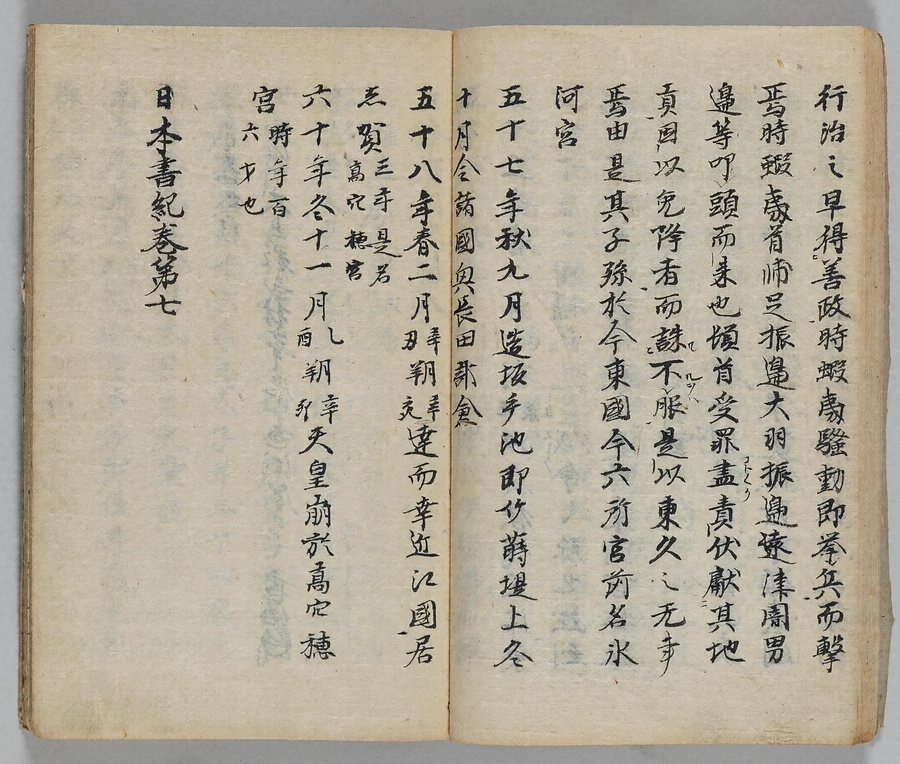 行治之早得善政時蝦夷騒動即挙兵而擊
焉時蝦夷首帥足振邊大羽振邊遠津闇男
邊等叩頭而来也頓首受罪盡責伏獻其地
貢因以免降者而誅不服是以東久之无事
焉由是其子孫於今東國今六所官前名氷
河宮
五十七年秋九月造坂手池即竹蒔堤上冬
十月令諸國興長田部倉
五十八年春二月辛丑朔辛亥達而幸近江國居
志賀三年是名高穴穂宮
六十年冬十一月乙酉朔辛卯天皇崩於高穴穂
宮時年百六才也
日本書紀巻第七